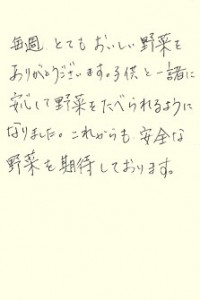 毎週 とても おいしい 野菜を
ありがとうございます。子供と一諸に
安心して野菜をたべられるように
なりました。これからも 安全な
野菜を期待しております。